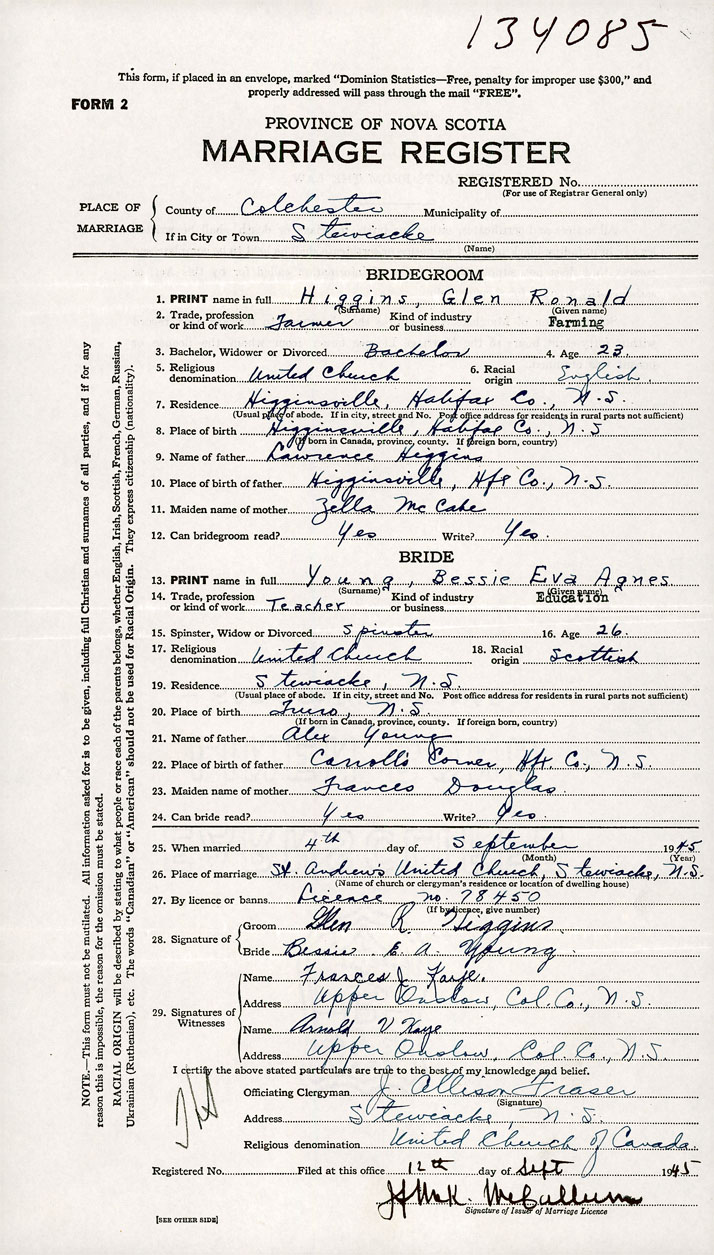 134085
This form, if placed in an envelope, marked "Dominion Statistics—Free, penalty for improper use $300," and
properly addressed will pass through the mail "FREE".
FORM 2
PROVINCE OF NOVA SCOTIA
MARRIAGE REGISTER
REGISTERED No.
(For use of Registrar General only)
PLACE OF MARRIAGE
County of Colchester Municipality of
If in City or Town Stewiacke
(Name)
BRIDEGROOM
1. PRINT name in full Higgins, Glen Ronald
(Surname) (Given name)
2. Trade, profession or kind of work Farmer Kind of industry or business Farming
3. Bachelor, Widower or Divorced Bachelor 4. Age 23
5. Religious denomination United Church 6. Racial origin English
7. Residence Higginsville, Halifax Co., N.S.
(Usual place of abode. If in city, street and No. Post office address for residents in rural parts not sufficient)
8. Place of birth Higginsville, Halifax Co., N.S
(If born in Canada, province, county. If foreign born, country)
9. Name of father Lawrence Higgins
10. Place of birth of father Higginsville, Hfx Co., N.S.
11. Maiden name of mother Zella McCabe
12. Can bridegroom read? Yes Write? Yes.
BRIDE
13. PRINT name in full Young, Bessie Eva Agnes
(Surname) (Given name)
14. Trade, profession or kind of work Teacher Kind of industry or business Education
15. Spinster, Widow or Divorced Spinster 16. Age 26.
17. Religious denomination United Church 18. Racial origin Scottish
19. Residence Stewiacke, N.S.
(Usual place of abode. If in city, street and No. Post office address for residents in rural parts not sufficient)
20. Place of birth Truro, N.S.
(If born in Canada, province, county. If foreign born, country)
21. Name of father Alex Young
22. Place of birth of father Carrolls Corner, Hfx. Co., N.S.
23. Maiden name of mother Frances Douglas
24. Can bride read? Yes Write? Yes.
25. When married 4th day of September 1945
(Month) (Year)
26. Place of marriage St. Andrew's United Church, Stewiacke, N.S.
(Name of church or clergyman's residence or location of dwelling house)
27. By licence or banns Licence no. 78450
(If by licence, give number)
28. Signature of
Groom Glen R. Higgins
Bride Bessie E. A. Young
29. Signatures of Witnesses
Name Frances J. Kaye.
Address Upper Onslow, Col. Co., N.S.
Name Arnold V Kaye
Address Upper Onslow, Col. Co., N.S.
I certify the above stated particulars are true to the best of my knowledge and belief.
Officiating Clergyman J. Allison Fraser
(Signature)
Address Stewiacke, N.S.
Religious denomination United Church of Canada.
Registered No. Filed at this office 12th day of Sept 1945
McCallum
Signature of Issuer of Marriage Licence
[SEE OTHER SIDE]
NOTE.—This form must not be mutilated. All information asked for is to be given, including full Christian and surnames of all parties, and if for any
reason this is impossible, the reason for the omission must be stated.
RACIAL ORIGIN will be described by stating to what people or race each of the parents belongs, whether English, Irish, Scottish, French, German, Russian,
Ukrainian (Ruthenian), etc. The words "Canadian" or "American" should not be used for Racial Origin. They express citizenship (nationality).